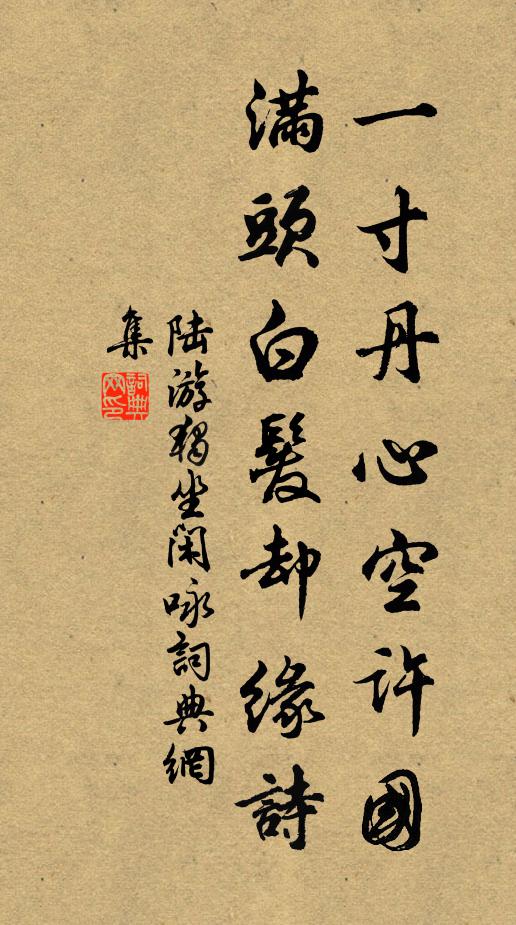 一寸丹心空許國
滿頭白髮却緣詩
陆游獨坐閑咏詞典網
集
詞典網印